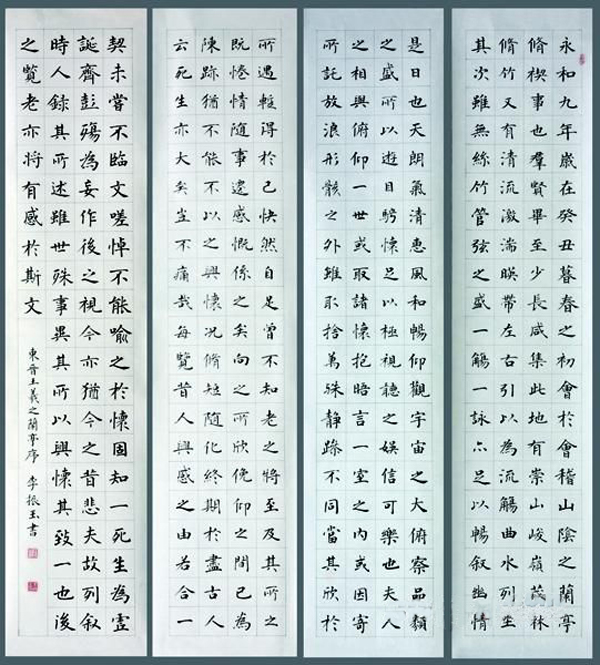 永和九年歲在癸丑暮春之初會於會稽山陰之蘭亭
脩禊事也羣賢畢至少長咸集此地有崇山峻嶺茂林
脩竹又有清流激湍暎帶左右引以為流觴曲水列坐
其次雖無絲竹管弦之盛一觴一詠亦足以暢叙幽情
是日也天朗氣清惠風和暢仰觀宇宙之大俯察品類
之盛所以遊目騁懷足以極視聽之娛信可樂也夫人
之相與俯仰一世或取諸懷抱晤言一室之內或因寄
所託放浪形骸之外雖取捨萬殊静躁不同當其欣於
所遇輒得於己快然自足曾不知老之將至及其所之
既惓情隨事遷感慨係之矣向之所欣俛仰之間已為
陳跡猶不能不以之興懷況脩短隨化終期於盡古人
云死生亦大矣豈不痛哉每覽昔人興感之由若合一
契未嘗不臨文嗟悼不能喻之於懷固知一死生為虛
誕齊彭殤為妄作後之視今亦猶今之昔悲夫故列叙
時人錄其所述雖世殊事異其所以興懷其致一也後
之覽老亦將有感於斯文
東晉王羲之蘭亭序 李振玉書